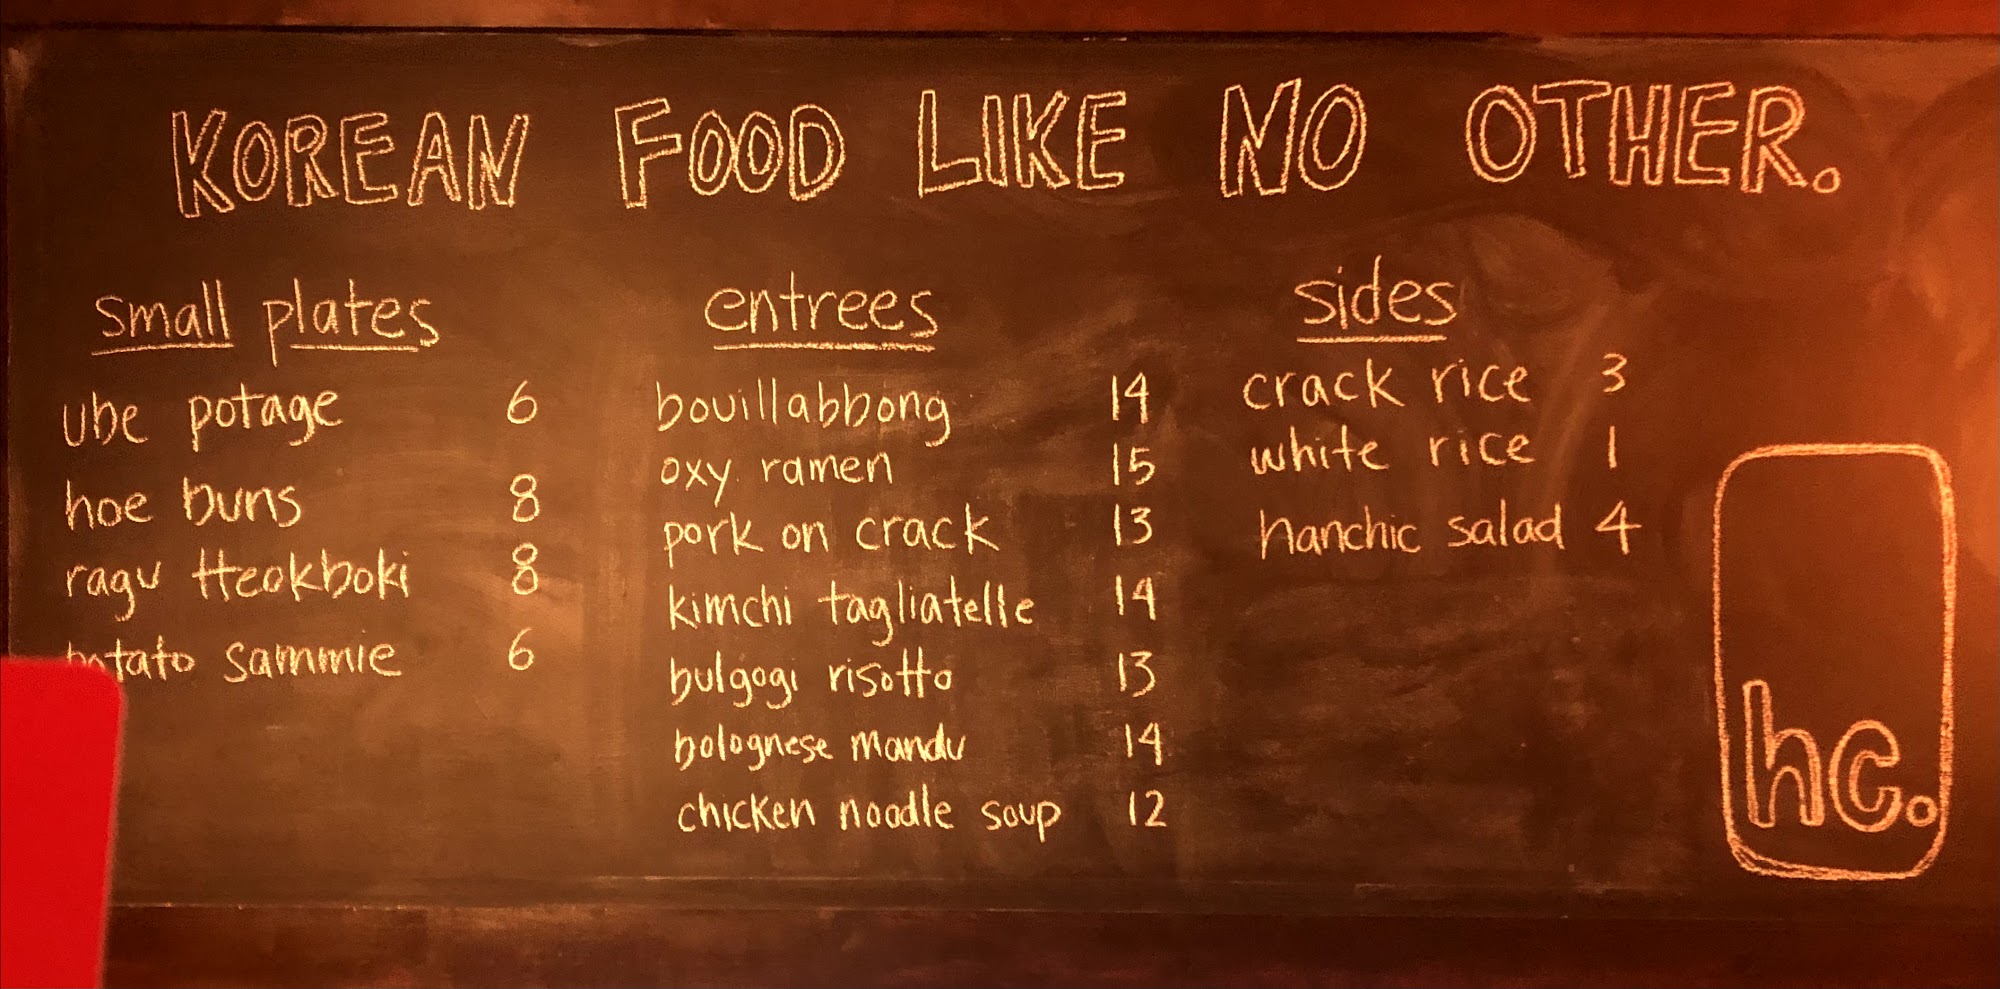 KOREAN FOOD LIKE NO OTHER.
small plates
ube potage 6
hoe buns 8
ragu tteokboki 8
potato sammie 6
entrees
bouillabbong 14
oxy ramen 15
pork on crack 13
kimchi tagliatelle 14
bulgogi risotto 13
bolognese mandu 14
chicken noodle soup 12
sides
crack rice 3
white rice 1
hanchic salad 4
hc.